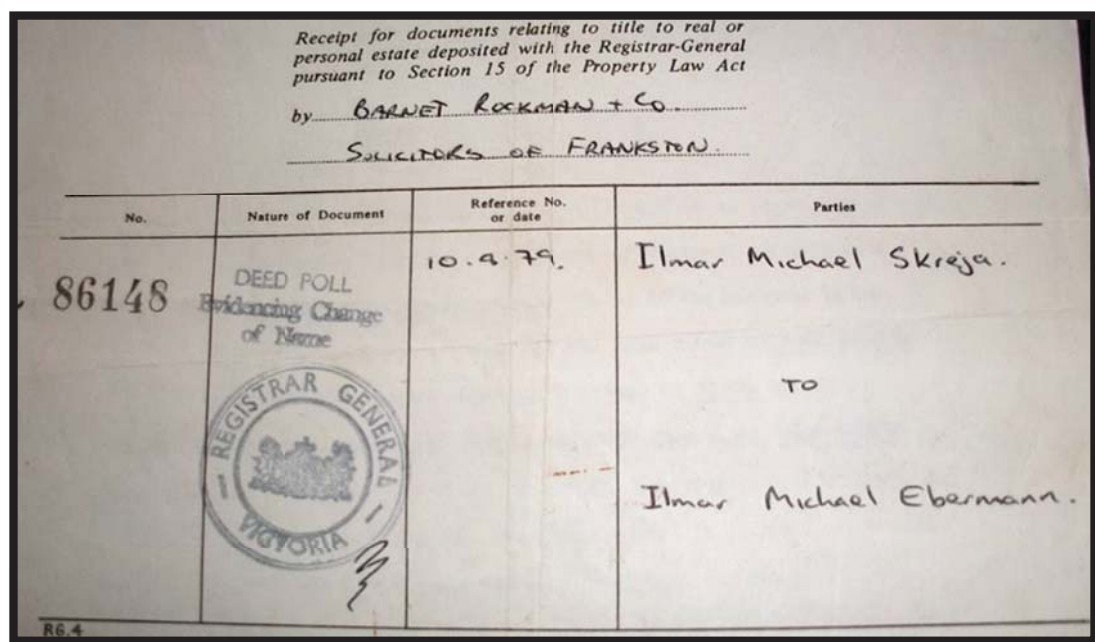 Receipt for documents relating to title to real or
personal estate deposited with the Registrar-General
pursuant to Section 15 of the Property Law Act
by BARNET ROCKMAN + Co.
SOLICITORS OF FRANKSTON.
No.
Nature of Document
Reference No.
or date
Parties
86148
DEED POLL
Evidencing Change
of Name
10.9.79.
Ilmar Michael Skreja.
TO
Ilmar Michael Ebermann.
REGISTRAR GENERAL
VICTORIA
RG.4